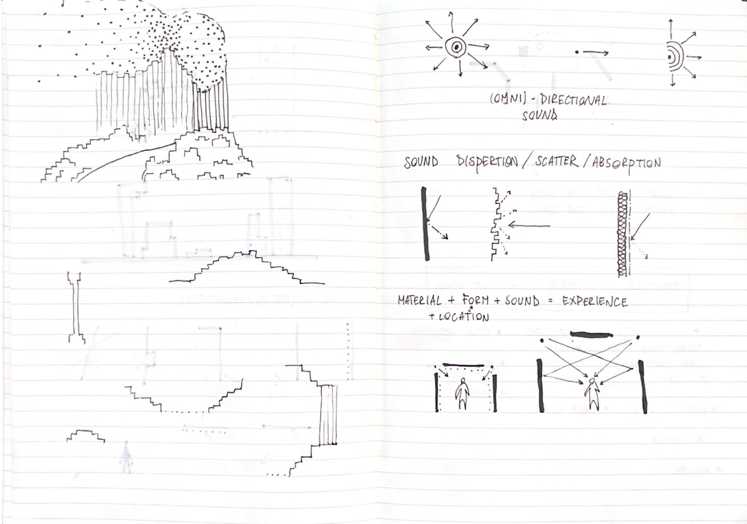 (OMNI) - DIRECTIONAL
SOUND
SOUND DISPERTION / SCATTER / ABSORPTION
MATERIAL + FORM + SOUND = EXPERIENCE
+ LOCATION